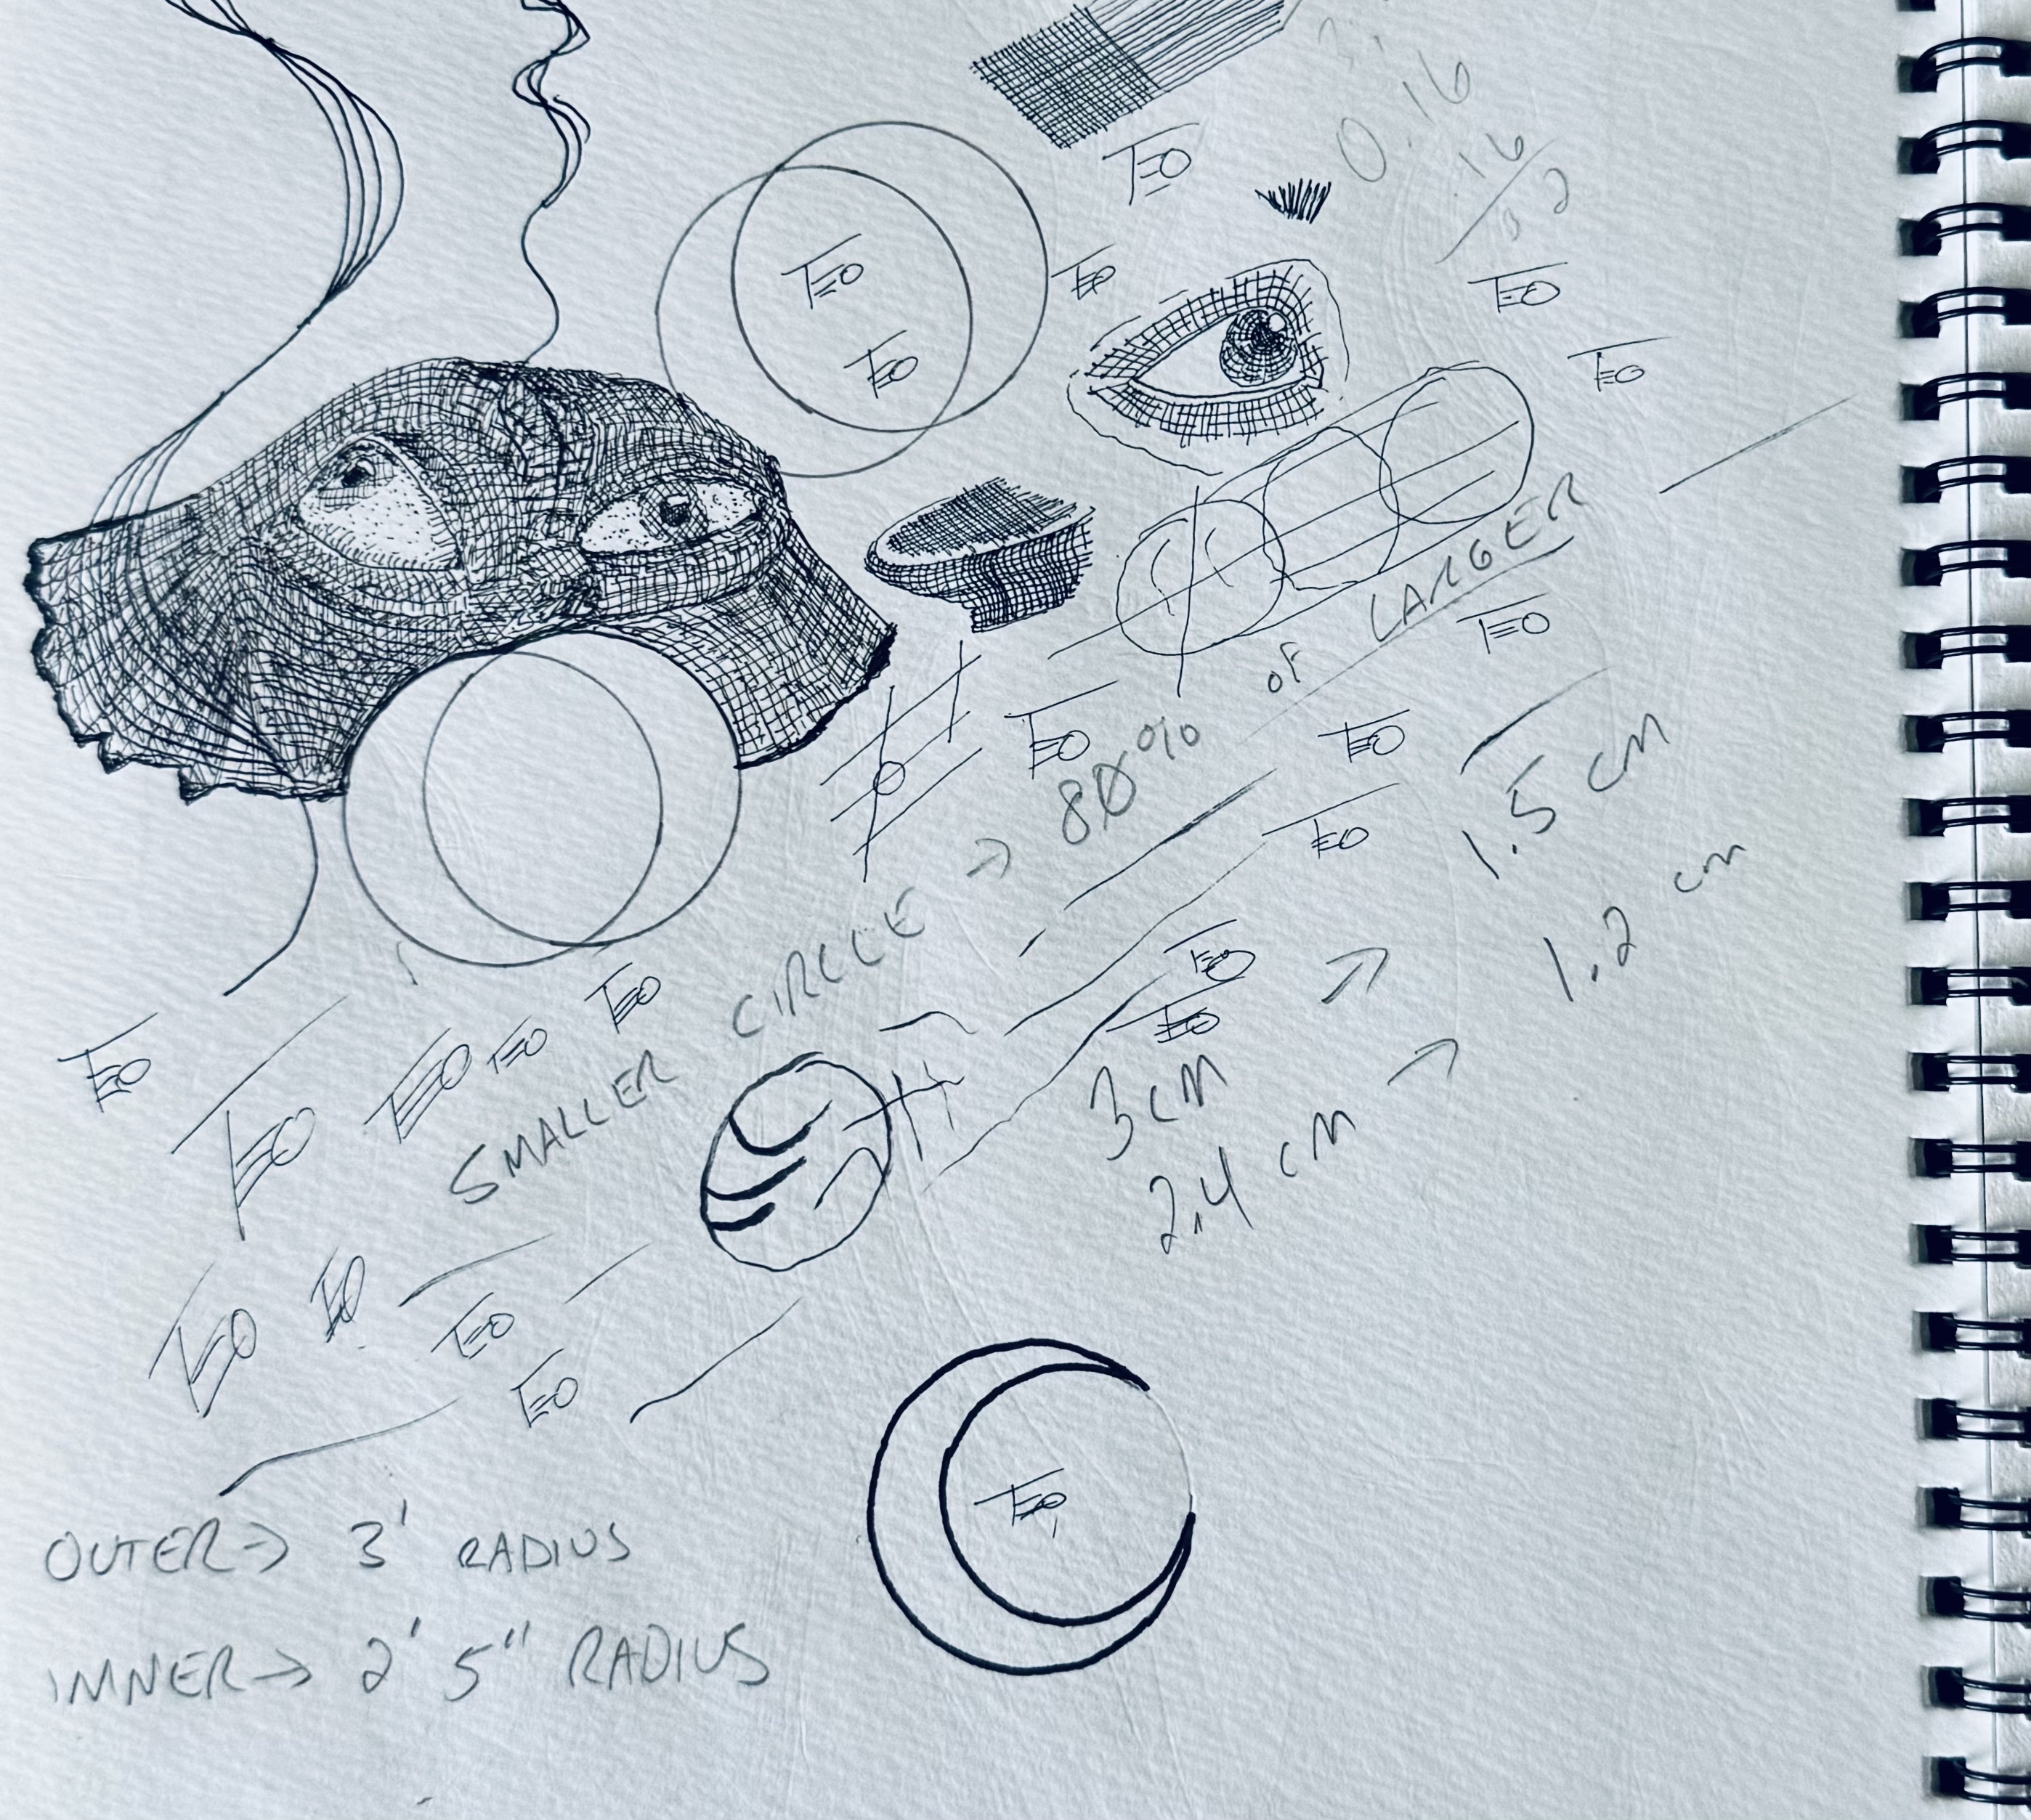 0.16
.16
TEO
TEO
TEO
TEO
TEO
TEO
TEO
TEO
TEO
TEO
SMALLER CIRCLE → 80% OF LARGER
1.5 cm
1.2 cm
TEO
TEO
3 cm →
2.4 cm →
TEO
TEO
TEO
TEO
TEO
TEO
TEO
TEO
TEO
TEO
OUTER → 3' RADIUS
INNER → 2' 5" RADIUS